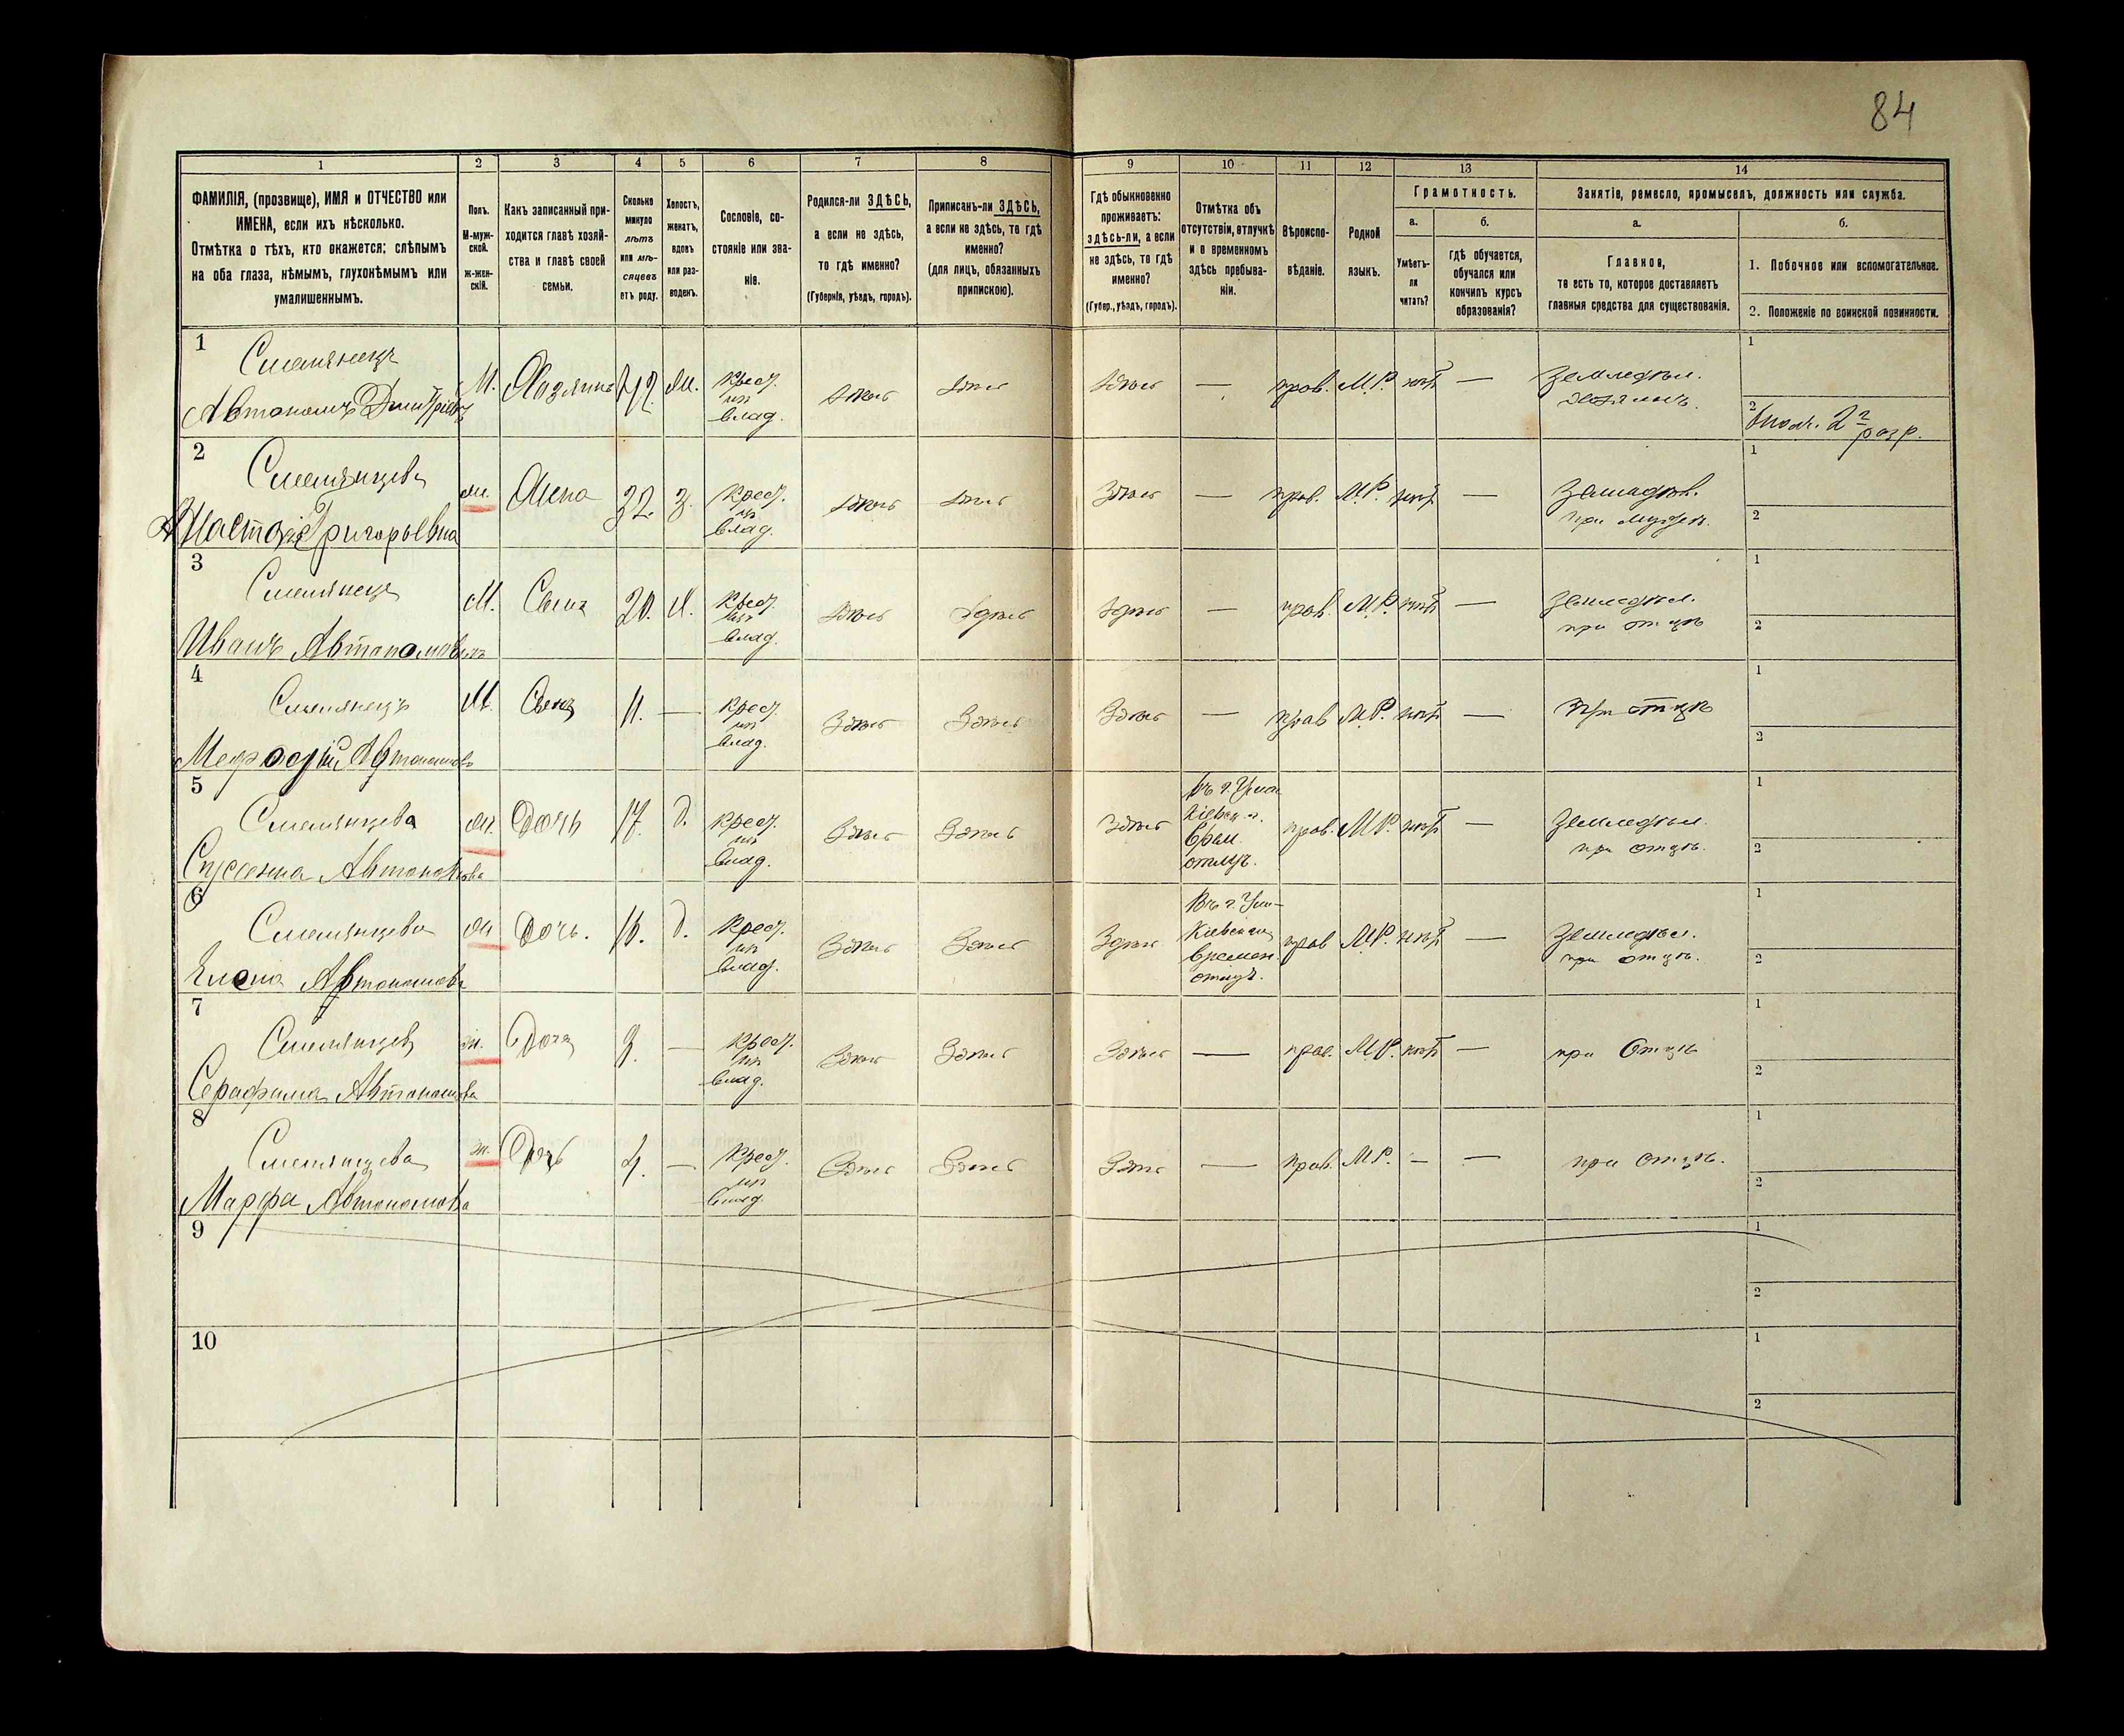 84
1 2 3 4 5 6 7 8 9 10 11 12 13 14
ФАМИЛІЯ, (прозвище), ИМЯ и ОТЧЕСТВО или
ИМЕНА, если ихъ нѣсколько.
Отмѣтка о тѣхъ, кто окажется: слѣпымъ
на оба глаза, нѣмымъ, глухонѣмымъ или
умалишеннымъ.
Полъ.
М-муж-
ской.
ж-жен-
скій.
Какъ записанный при-
ходится главѣ хозяй-
ства и главѣ своей
семьи.
Сколько
минуло
лѣтъ
или мѣ-
сяцевъ
отъ роду.
Холостъ,
женатъ,
вдовъ
или раз-
веденъ.
Сословіе, со-
стояніе или зва-
ніе.
Родился-ли ЗДѢСЬ,
а если не здѣсь,
то гдѣ именно?
(Губернія, уѣздъ, городъ).
Приписанъ-ли ЗДѢСЬ,
а если не здѣсь, то гдѣ
именно?
(для лицъ, обязанныхъ
припискою).
Гдѣ обыкновенно
проживаетъ:
здѣсь-ли, а если
не здѣсь, то гдѣ
именно?
(Губер., уѣздъ, городъ).
Отмѣтка объ
отсутствіи, отлучкѣ
и о временномъ
здѣсь пребыва-
ніи.
Вѣроиспо-
вѣданіе.
Родной
языкъ.
Грамотность.
а.
Умѣетъ-
ли
читать?
б.
Гдѣ обучается,
обучался или
кончилъ курсъ
образованія?
Занятіе, ремесло, промыселъ, должность или служба.
а.
Главное,
то есть то, которое доставляетъ
главныя средства для существованія.
б.
1. Побочное или вспомогательное.
2. Положеніе по воинской повинности.
1
Смелянецъ
Автономъ Дмитріевъ
М. Хозяинъ 42 Ж. Крест. здѣсь здѣсь здѣсь — прав. М.Р. нѣтъ — Земледѣл.
из
влад.
хозяинъ.
1
2
2
разр.
2
Смелянцева
Настасія Григорьевна
ж. Жена 32. З. Крест. здѣсь здѣсь здѣсь — прав. М.Р. нѣтъ — Земледѣл.
из
влад.
при мужѣ.
1
2
3
Смелянецъ
Иванъ Автономовичъ
М. Сынъ 20. Х. Крест. здѣсь здѣсь здѣсь — прав. М.Р. нѣтъ — Земледѣл.
из
влад.
при отцѣ
1
2
4
Смелянецъ
М. Сынъ 11. — Крест. Здѣсь Здѣсь Здѣсь — прав М.Р. нѣтъ — При отцѣ
из
влад.
1
2
5
Смелянцева
Автономова
ж. Дочь 17. д. Крест. Здѣсь Здѣсь здѣсь
из
влад.
въ г. Уман
Кіевск. г.
Врем.
отлуч.
прав. М.Р. нѣтъ — Земледѣл.
при отцѣ.
1
2
6
Смелянцева
Елена Автономова
ж Дочь. 16. д. Крест. Здѣсь Здѣсь Здѣсь
из
влад.
Въ г. Ум-
Кіевской
Времен.
отлуч.
прав М.Р. нѣтъ — Земледѣл.
при отцѣ.
1
2
7
Смелянцева
Серафима Автономова
ж. Дочь — Крест. Здѣсь Здѣсь Здѣсь — прав. М.Р. нѣтъ — при Отцѣ
из
влад.
1
2
8
Смелянцева
Марфа Автономова
ж. Дочь 4. — Крест. Здѣсь Здѣсь Здѣсь — прав. М.Р. — — при Отцѣ.
из
влад.
1
2
9
1
2
10
1
2